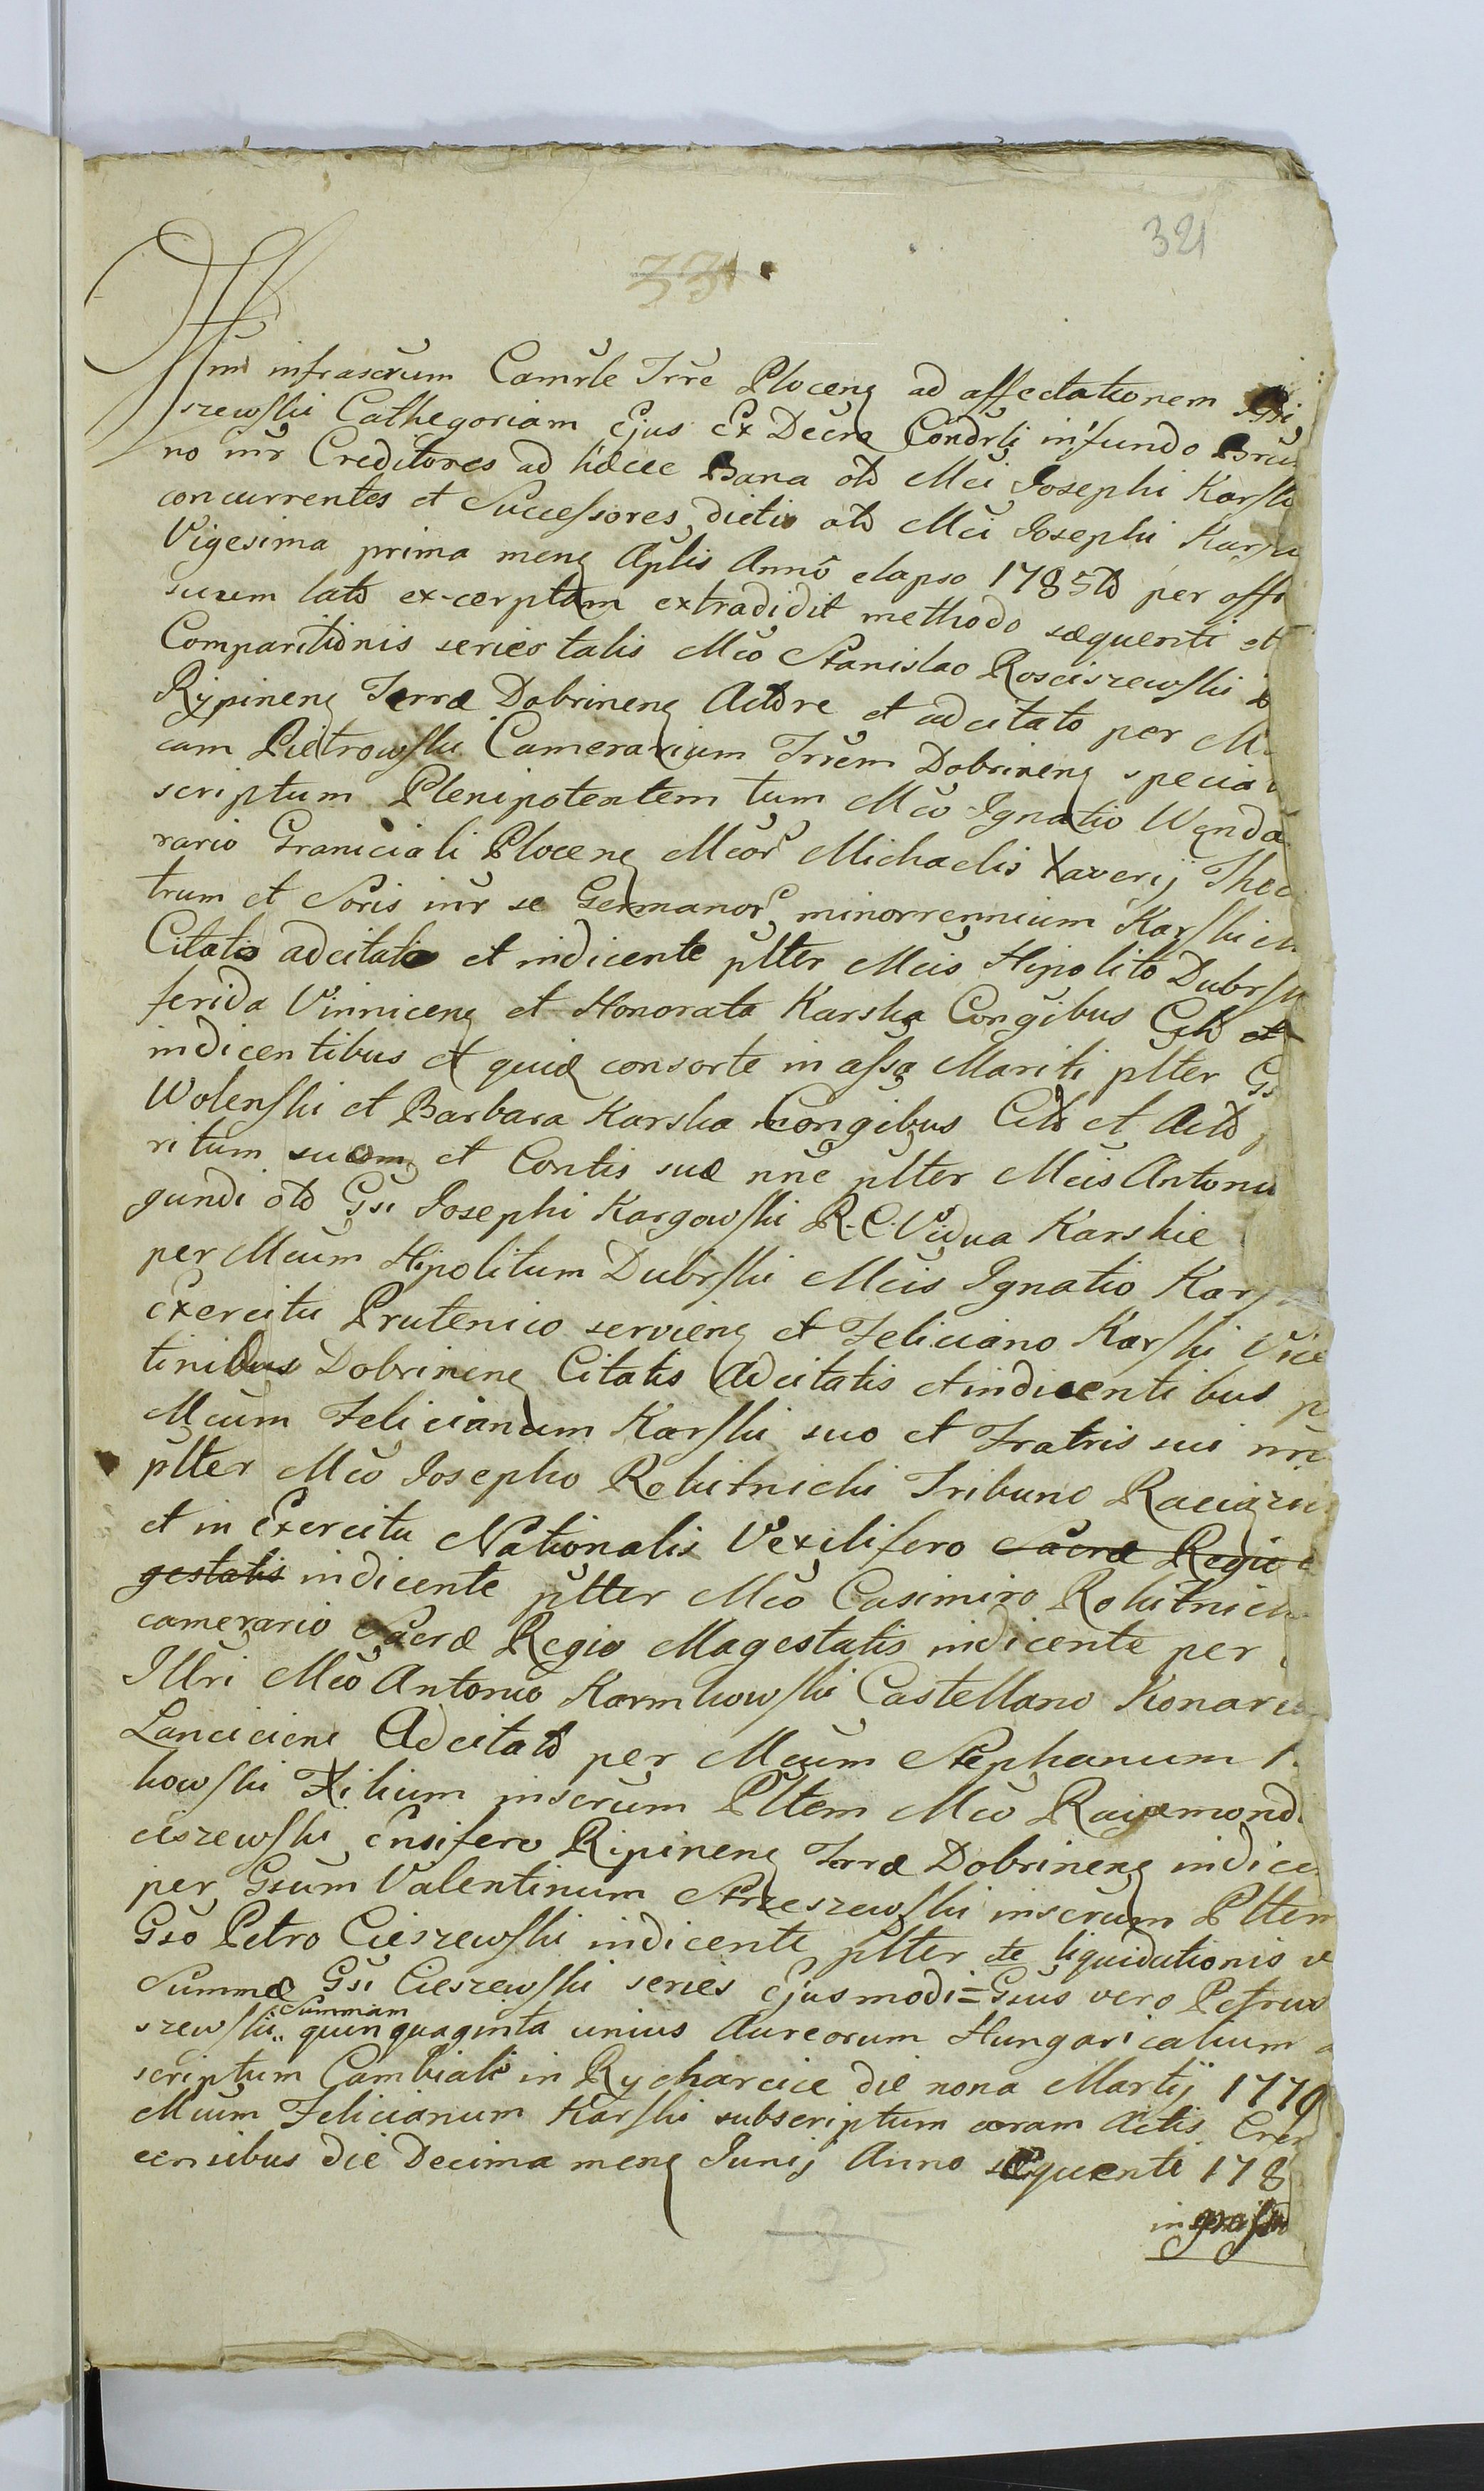 321
331
infrascrum Camrle Trre Plocens ad affectationem Gsi
szewski Cathegoriam Ejus Ex Decro Condrli in fundo Bru
no intr Creditores ad hæcce Bona otd Mci Josephi Karski
concurrentes et Successores dicti otd Mci Josephi Kars
Vigesima prima mens Aplis Anno elapso 1785to per offi
suum lato ex-cerptam extradidit methodo sæquenti et
Comparitionis series talis Mco Stanislao Rosciszewski
Rypinens Terræ Dobrinens Actore et adcitato per M
cam Pietrowski Camerarium Trrem Dobrinens specia
scriptum Plenipotentem tum Mco Ignatio Wenda
rario Graniciali Plocens Mcor Michaelis Xaverij The
trum et Soris intr se Germanor minorrennium Karskich
Citato adcitato et indicente plter Mcis Hipolito Dubrsk
ferida Vinnicens et Honorata Karska Congibus Citis et
indicentibus et quid consorte in assa Mariti plter Gs
Wolenski et Barbara Karska Congibus Citis et Actd
ritum suum et Contis suæ nne plter Mcis Antoni
gundi otd Gsi Josephi Kargowski R.C. Vidua Karskie
per Mcum Hipolitum Dubrski Mcis Ignatio Kars
Exercitu Prutenico serviens et Feliciano Karski Vice
tinibus Dobrinens Citatis Adcitatis et indicentibus p
Mcum Felicianum Karski suo et Fratris sui nne
plter Mco Josepho Rokitnicki Tribuno Raciązn
et in Exercitu Nationalis Vexilifero Sacræ Regiæ
gestatis indicente plter Mco Casimiro Rokitnick
camerario Sacræ Regio Magestatis indicente per
Illri Mco Antonio Karmkowski Castellano Konar
Lanciciens Adcitato per Mcum Stephanum
kowski Filium inscrum Pltem Mco Raijemond
ciszewski Ensifero Ripinens Terræ Dobrinens indice
per Gsum Valentinum Strzeszewski inscrum Pltem
Gso Petro Cieszewski indicente plter de liquidationis v
Summæ Gsi Cieszewski series ejusmodi = Gsus vero Petrus
Summam
szewski quinquaginta unius Aureorum Hungaricalium
scriptum Cambiale in Rycharcice die nona Martij 1779
Mcum Felicianum Karski subscriptum coram Actis Cren
censibus die Decima mens Junij Anno sæquenti 178